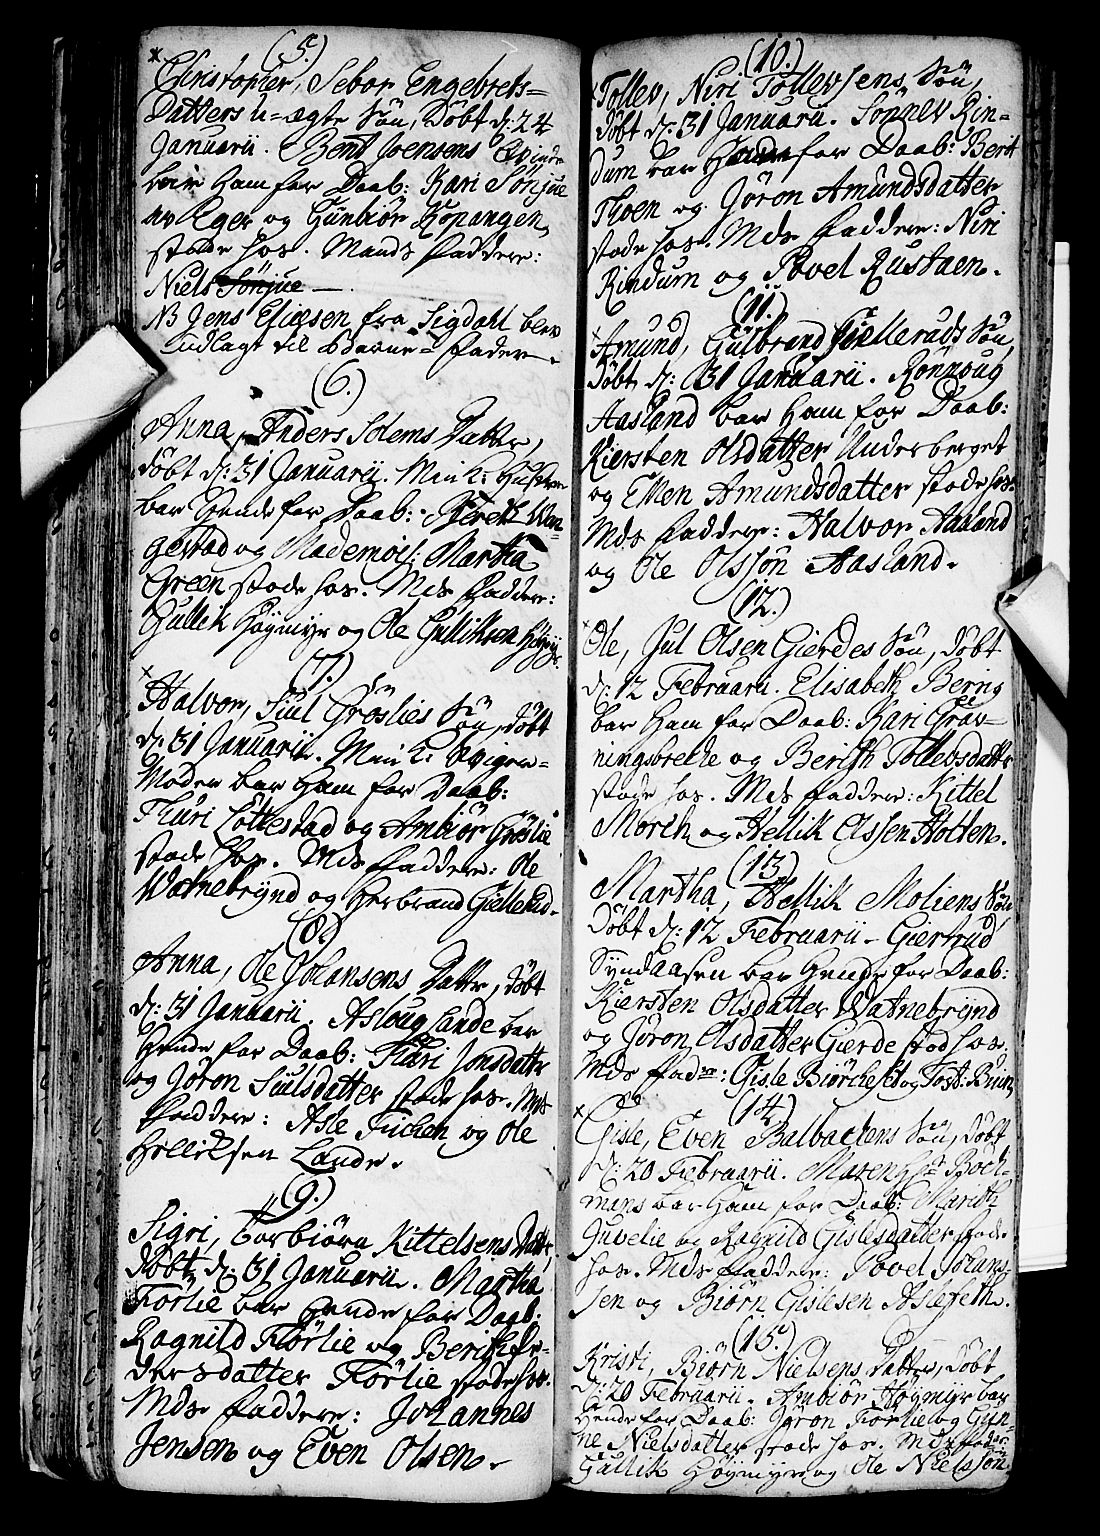 (5.)
Christopher, Sebor Engebrets=
Datters u=ægte Søn, Døbt d: 24
Januarii. Bent Joensens Qvinde
bar Ham for Daab: Kari Sönjue
av Eger og Gunbiör Kopangen
stode hos. Mands faddere:
Niels Sönjue —
NB Jens Eliæsen fra Sigdahl blev
udlagt til Barne=fader.
(6.)
Anna, Anders Solems Datter,
døbt d: 31 Januarii. Min K: Hustrue
bar Hende for Daab: Bereth Wan=
gestad og Mademois: Martha
Green stode hos. Mds faddere:
Gullik Höymyr og Ole Gulliksen Höymyr.
(7.)
Halvor, Siul Gröslies Søn, døbt
d: 31 Januarii. Min K: Sviger=
Moder bar Ham for Daab:
Thuri Löttestad og Ambiör Gröslie
stode hos. Mds faddere: Ole
Watnebrynd og Herbrand Giellerud.
(8.)
Anna, Ole Johansens Datter, døbt
d: 31 Januarii. Asloug Lande bar
Hende for Daab: Thuri Jonsdattr
og Jöron Siulsdatter stode hos. Mds
faddere: Asle Tuchen og Ole
Helliksen Lande.
(9.)
Sigri, Torbiörn Kittelsens Datter,
Døbt d: 31 Januarii. Martha
Förlie bar Hende for Daab:
Ragnild Förlie og Berith Pe=
dersdatter Förlie stode hos.
Mds faddere: Johannes
Jensen og Even Olsen.
(10.)
Tollev, Niri Tollevsens Søn,
Døbt d: 31 Januarii. Sönnev Rin=
dum bar Ham for Daab: Berit
Thoen og Jöron Amundsdatter
stode hos. Mds faddere: Niri
Rindum og Povel Rustaen.
(11.)
Amund, Gulbrand Gielleruds Søn,
Døbt d: 31 Januarii. Rönnoug
Aasland bar Ham for Daab:
Kiersten Olsdatter Underberget
og Ellen Amundsdatter stode hos.
Mds faddere: Halvor Aasland
og Ole Olssön Aasland.
(12.)
Ole, Jul Olsen Gierdes Søn, Døbt
d: 12 Februarii. Elisabeth Bering
bar Ham for Daab: Kari Grav=
ningsbrethe og Berith Tollevsdattr
stode hos. Mds faddere: Kittel
Morth og Hellik Olssen Holten.
(13)
Martha, Hellik Moliens
Døbt d: 12 Februarii. Giertrud
Syndaasen bar Hende for Daab:
Kiersten Olsdatter Watnebrynd
og Jöron Olsdatter Gierde stod hos.
Mds Fadre: Gisle Biörchesét og Tost: Bruun
(14.)
Gisle, Even Balbachens Søn, Døbt
d: 20 Februarii. Maren Boch=
mans bar Ham for Daab: Marith
Juvelie og Ragnild Gislesdatter stode
hos. Mds faddere: Povel Johans=
sen og Biörn Gislesen Aslefeth.
(15.)
Kristi, Biörn Nielsens Datter, Døbt
d: 20 Februarii. Ambiör Höymyr bar
Hende for Daab: Jöron Förlie og Gun=
ne Nielsdatter stode hos. Mds fadre:
Gullik Höymyr og Ole Nielssön